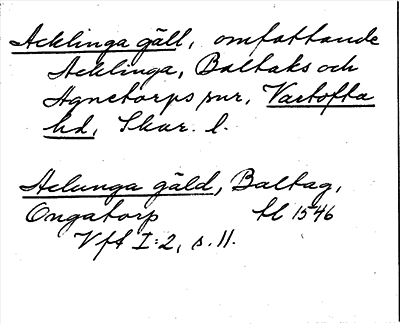 Acklinga gäll, omfattande
Acklinga, Baltaks och
Agnetorps snr, Vartofta
hd, Skar. l.
Aclunga gäld, Baltag,
Ongatorp tl 1546
Vft I:2, s. 11.